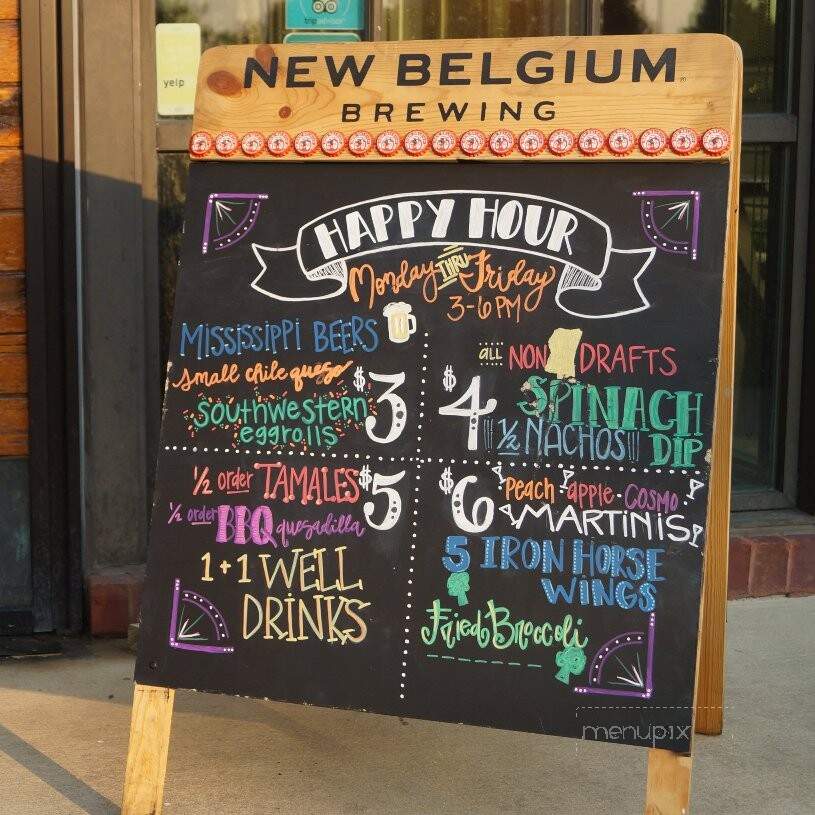 tripadvisor
yelp
NEW BELGIUM
BREWING
HAPPY HOUR
Monday THRU Friday
3-6 PM
MISSISSIPPI BEERS
small chile queso
southwestern
eggrolls
$3
all NON DRAFTS
$4
SPINACH
DIP
1/2 NACHOS
1/2 order TAMALES
1/2 order BBQ quesadilla
$5
1+1 WELL
DRINKS
$6
Peach apple - COSMO
MARTINIS
5 IRON HORSE
WINGS
Fried Broccoli
menupix